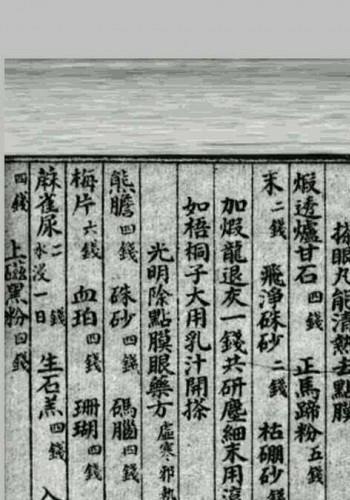 搽眼凡能清熱去點膜
煅透爐甘石四錢 正馬蹄粉五錢
末二錢 飛淨硃砂二錢 枯硼砂錢
加煆龍退灰一錢共研塵細末用
如梧桐子大用乳汁開搽
光明除點膜眼藥方虛寒邪熱
熊膽四錢 硃砂四錢 碼腦四錢
梅片六錢 血珀四錢 珊瑚四錢
麻雀屎二錢水浸一日 生石羔四錢
四錢 上磁黑粉四錢